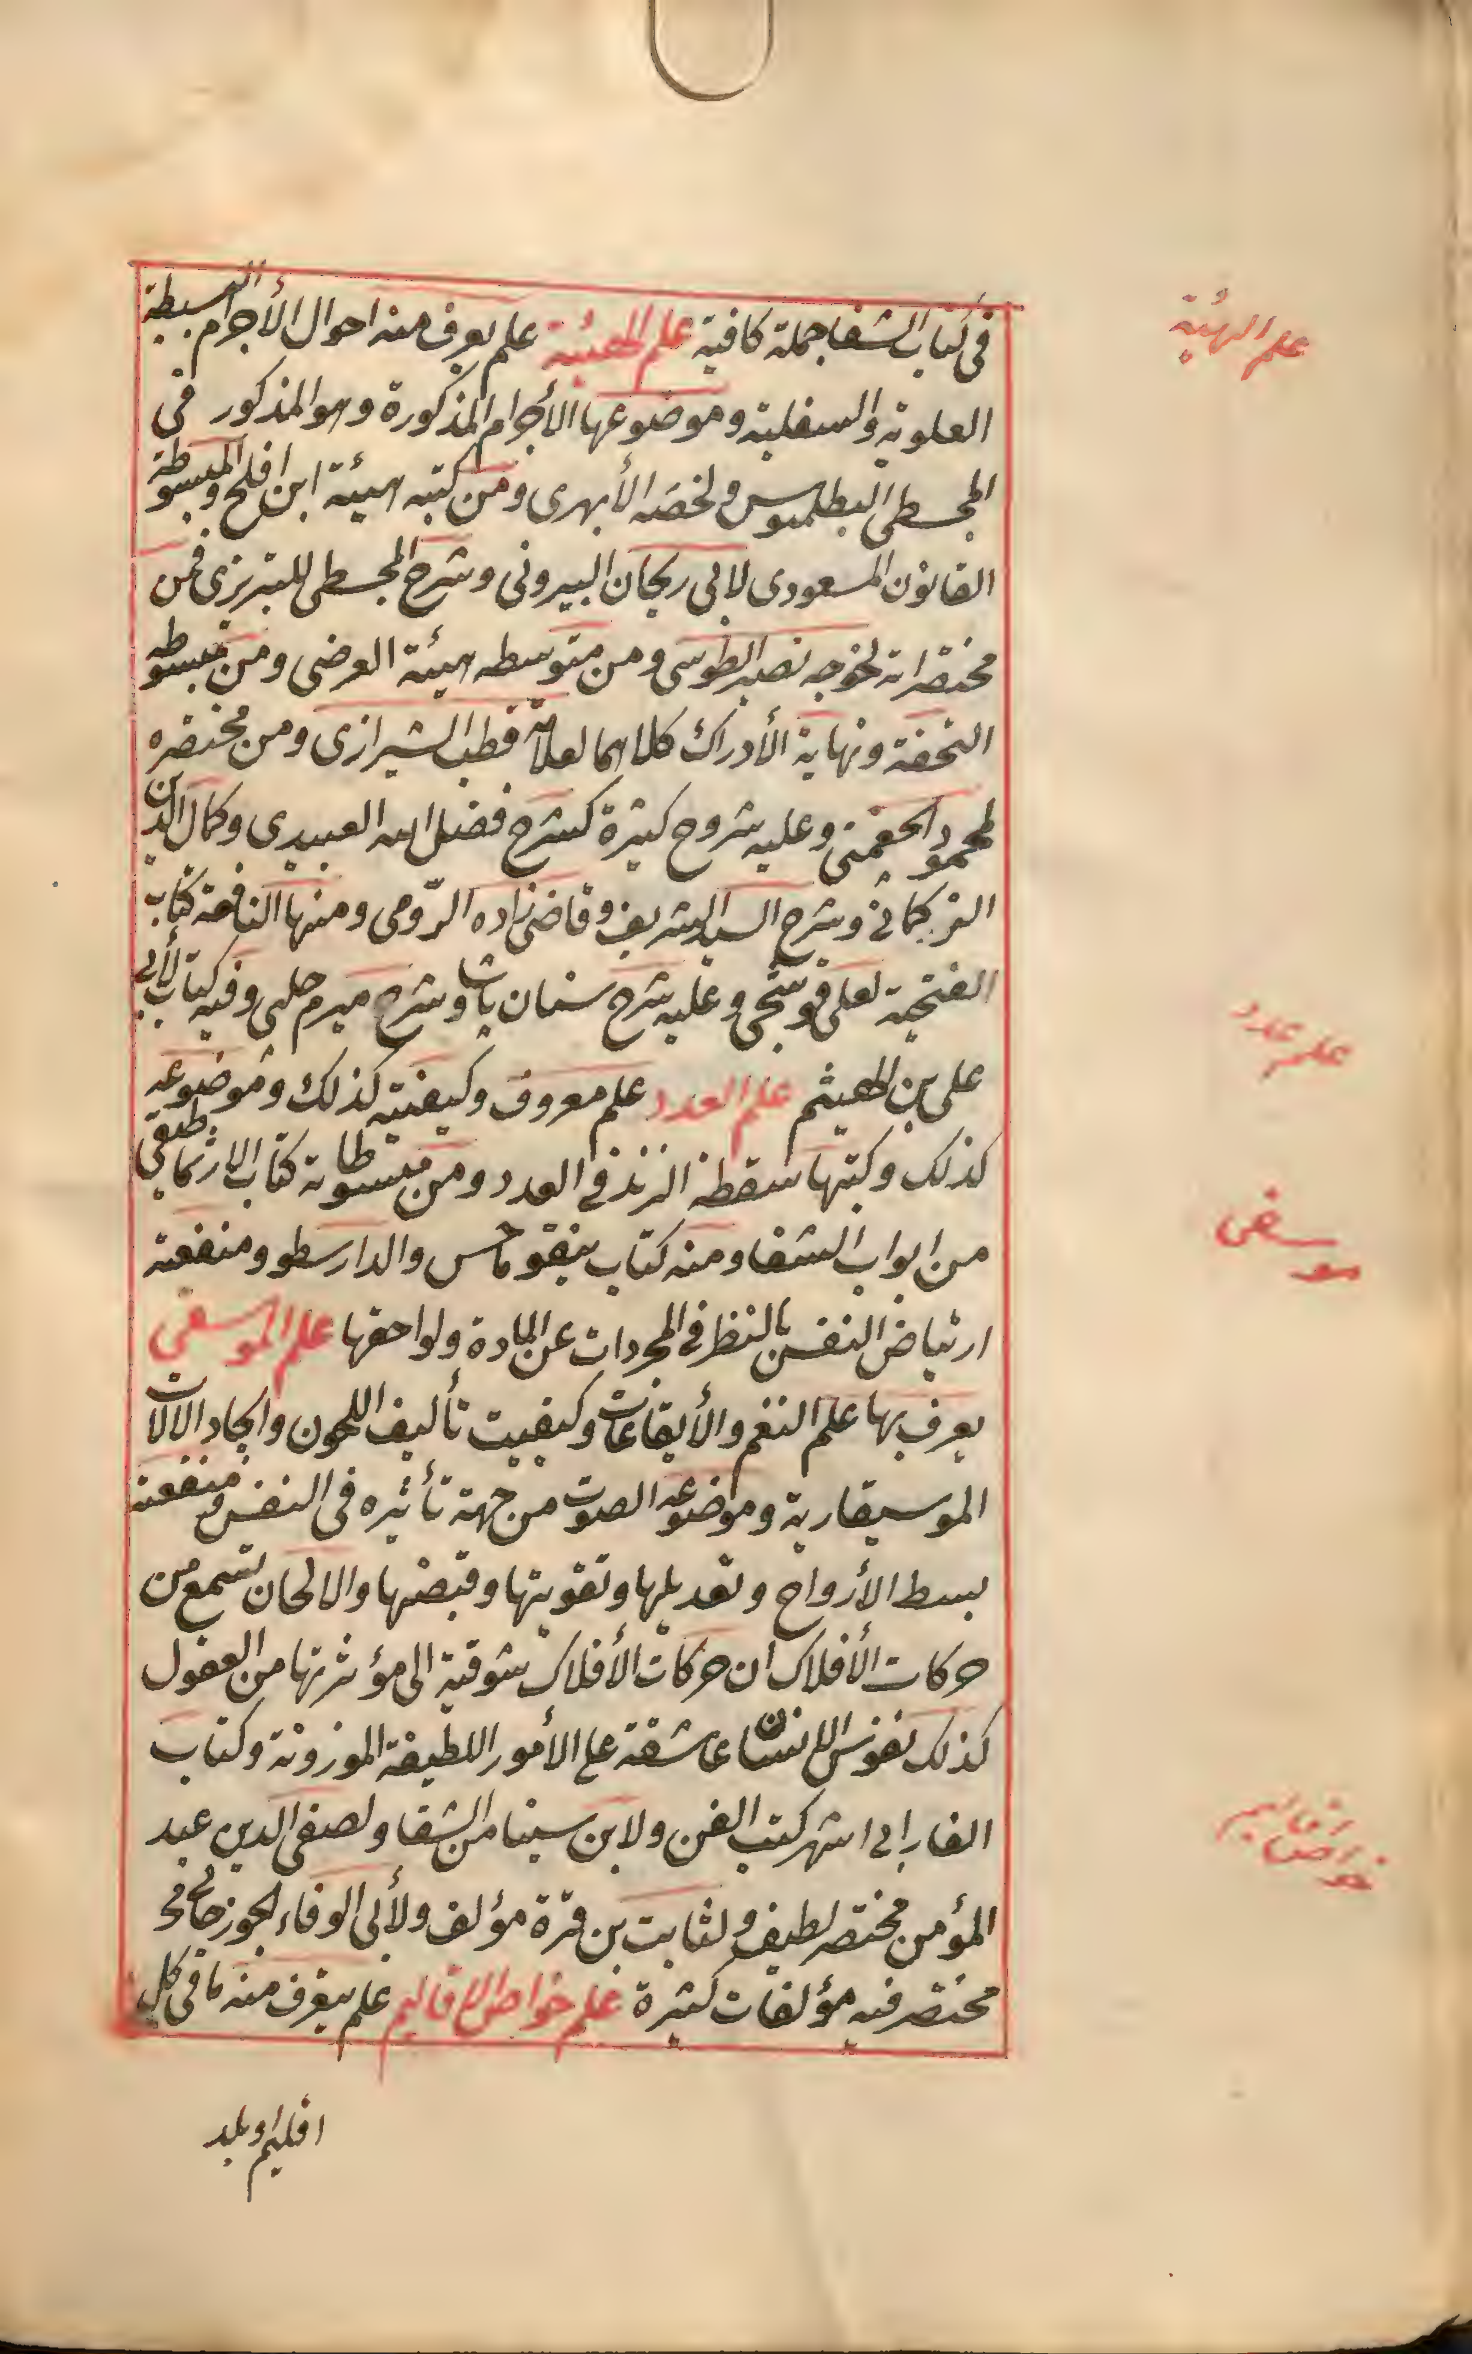 فى كتاب الشفا جملة كافية علم الهيئة علم يعرف منه احوال الأجرام البسيطة
علم الهيئة
العلوية والسفلية وموضوعها الأجرام المذكورة وهو المذكور فى
المجسطى البطلميوس ولخصه الأبهرى ومن كتبه هيئة ابن افلح والمبسوطة
القانون المسعودى لابى ريحان البيرونى وشرح المجسطى للتبريزى فمن
مختصراته لخوجه نصير الطوسى ومن متوسطه هيئة العرضى ومن مبسوطه
التحفة ونهاية الأدراك كلاهما لعلامة قطب الشيرازى ومن مختصره
لمحمود الجغمينى وعليه شروح كثيرة كشرح فضل الله العبيدى وكمال الدين
التركمانى وشرح السيد الشريف وقاضى زاده الرّومى ومنها النافعة كتاب
الفتحية لعلى قوشجى وعليه شرح سنان پاشا وشرح ميرم چلبى وفيه كتاب لأبى
على بن الهيثم علم العدد علم معروف وكيفيته كذلك وموضوعه
علم عدد
كذلك وكتبها سقطة الزند فى العدد ومن مبسوطاته كتاب الارثماطيقى
من ابواب الشفا ومنه كتاب نيقوماخس والدارسطو ومنفعته
موسقى
ارتياض النفس بالنظر فى المجردات عن المادة ولواحقها علم الموسقى
يعرف بها علم النغم والأيقاعات وكيفيت تأليف اللحون وايجاد الالات
الموسيقارية وموضوعه الصوت من جهة تأثيره فى النفس ومنفعته
بسط الأرواح وتعديلها وتقويتها وقبضها والالحان تسمع من
حركات الأفلاك ان حركات الأفلاك شوقية الى مؤثرتها من العقول
كذلك نفوس الانسان عاشقة على الأمور اللطيفة الموزونة وكتاب
الفارابى اشهر كتب الفن ولابن سينا من الشفا ولصفى الدين عبد
خواص اقاليم
المؤمن مختصر لطيف ولثابت بن قرة مؤلف ولأبى الوفاء الجوزجانى
مختصر فيه مؤلفات كثيرة علم خواص الاقاليم علم يتعرف منه ما فى كل
اقليم او بلد